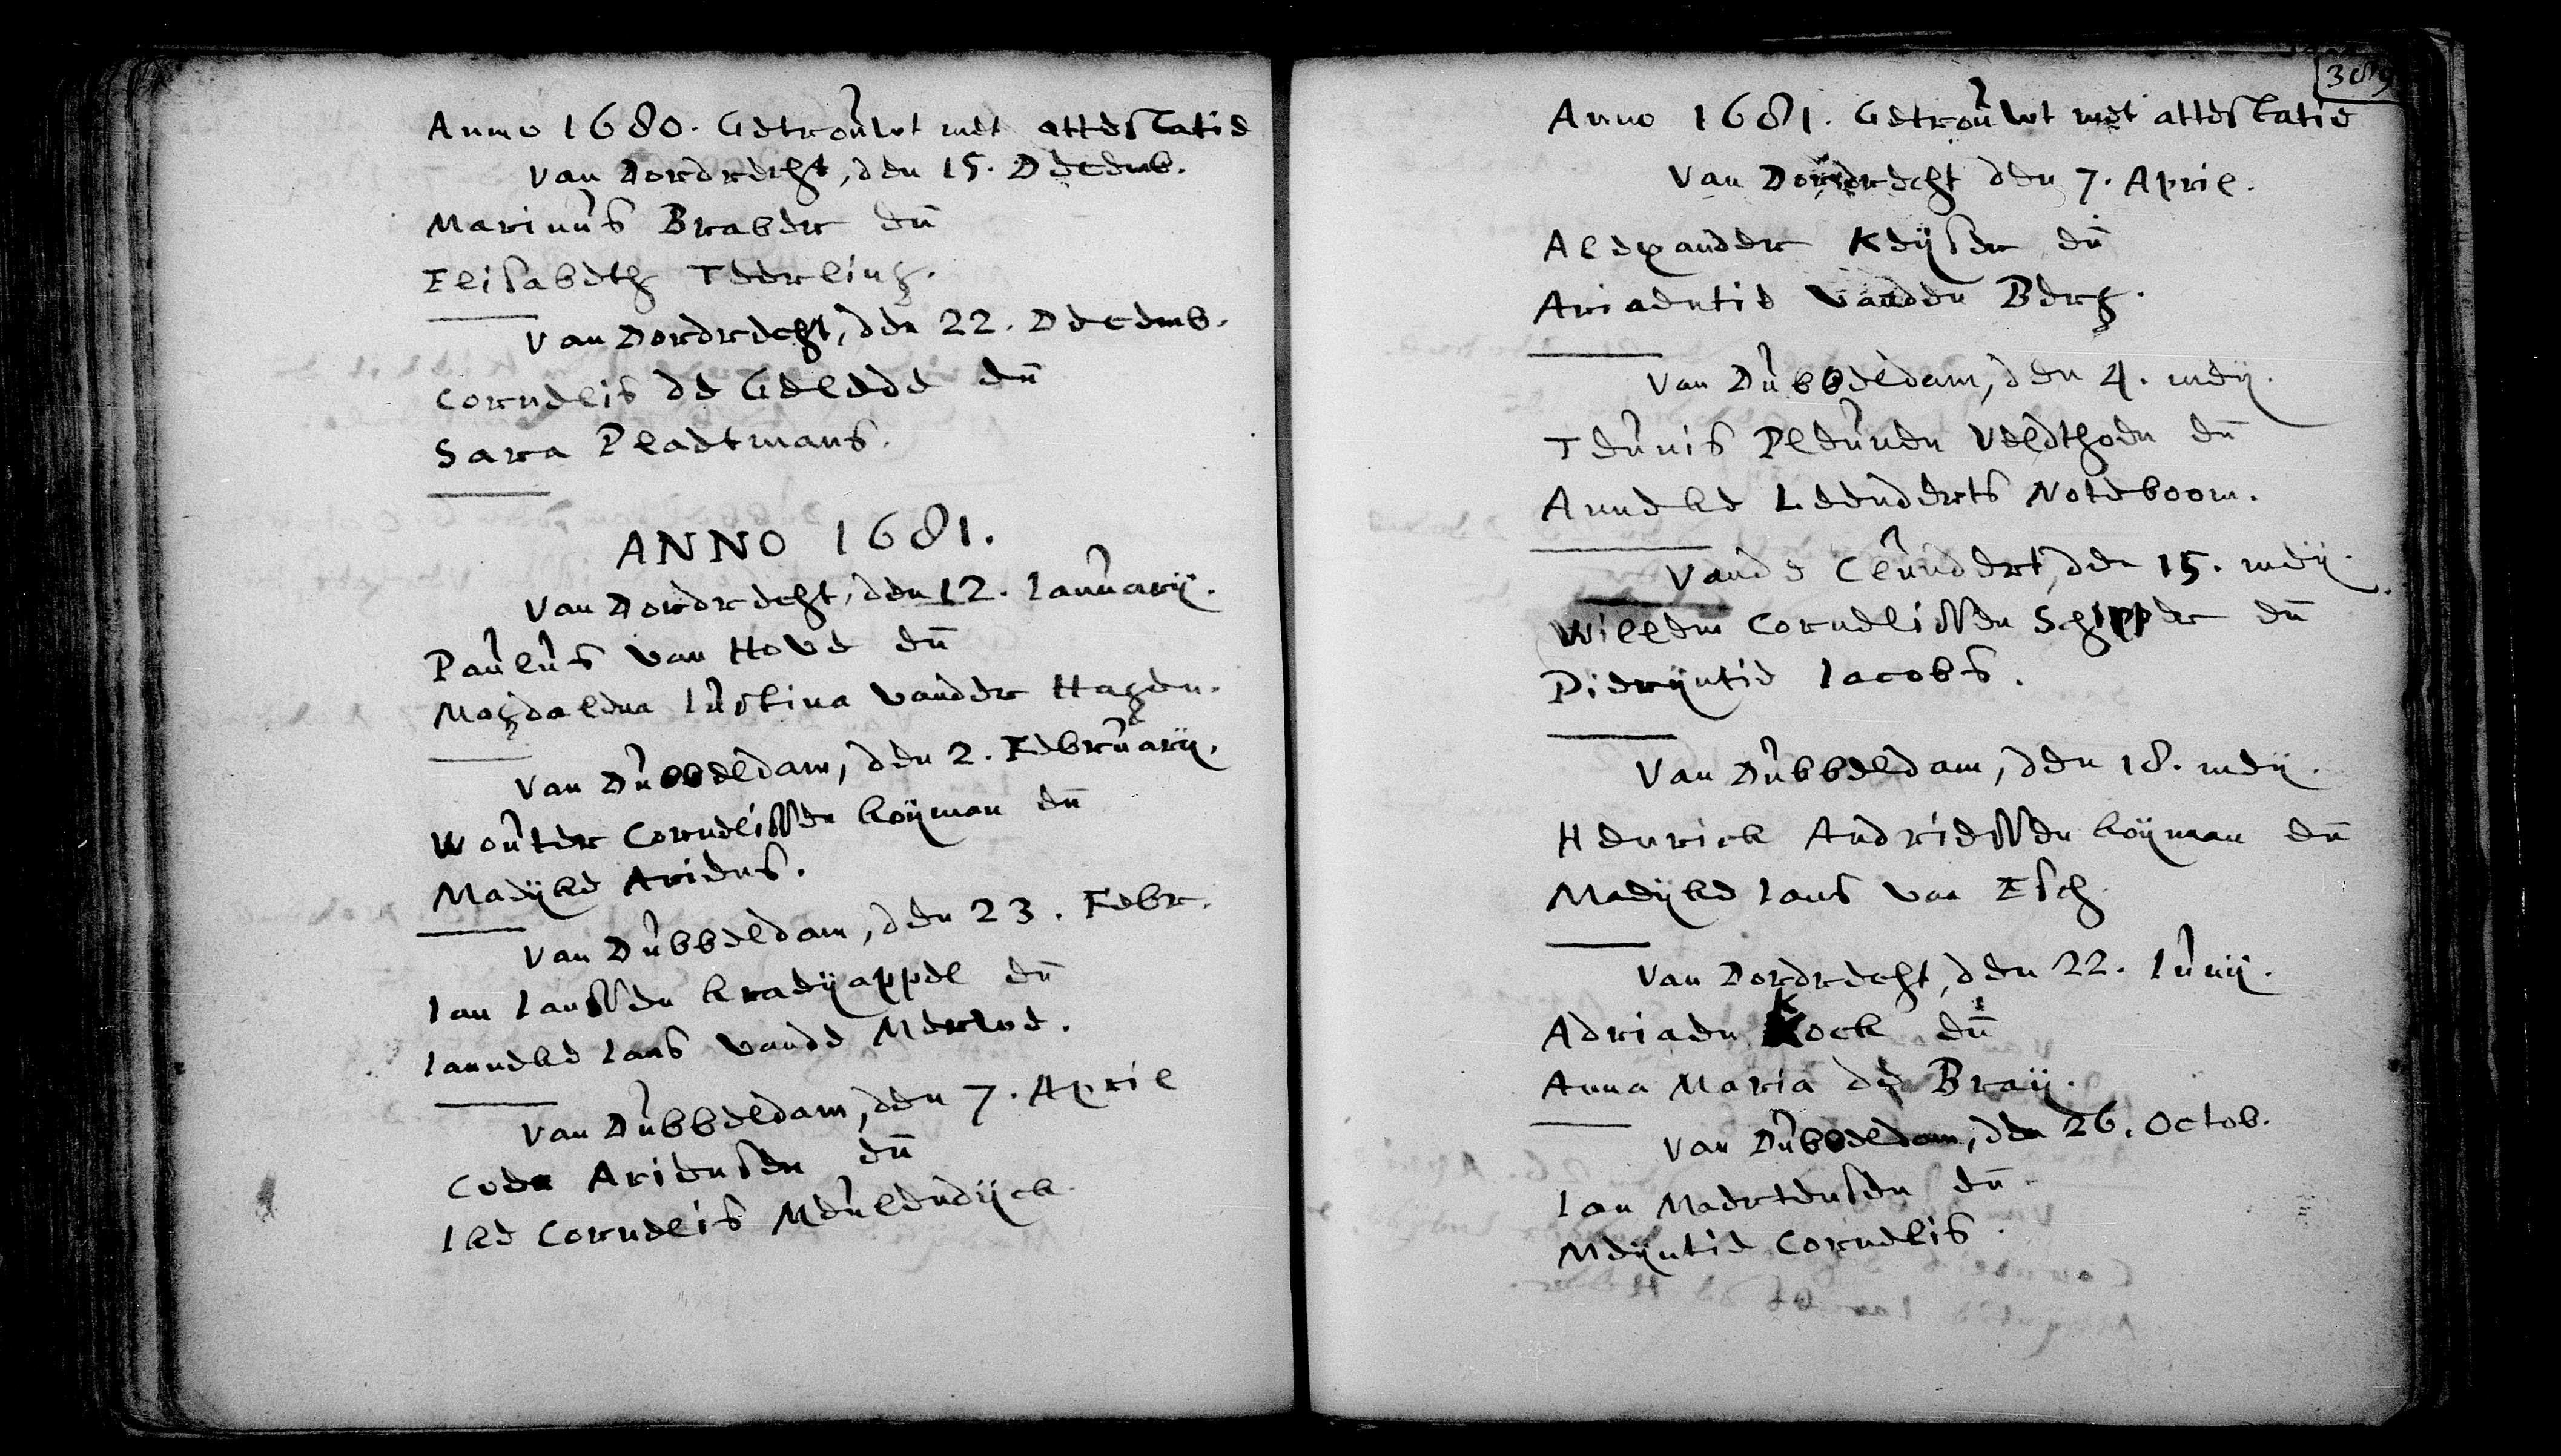 Anno 1680. Getrouwt met attestatie
Van Dordrecht, den 15. Decemb.
Marinus Braber en̄
Elisabeth Teerling.
Van Dordrecht, den 22. Decemb.
Cornelis de Gelede en̄
Sara Plaetmans.
ANNO 1681.
Van Dordrecht, den 12. Ianuarij.
Paulus van Hove en̄
Magdalena Iustina vander Hagen.
Van Dubbeldam, den 2. Februarij.
Wouter Cornelissen koijman en̄
Maeijke Ariens.
Van Dubbeldam, den 23. Febr.
Ian Ianssen kraeijappel en̄
Ianneke Ians vande Merwe.
Van Dubbeldam, den 7. April
Coen Ariensen en̄
Ike Cornelis Meulendijck
Anno 1681. Getrouwt met attestatie
Van Dordrecht den 7. April.
Alexander Keijser en̄
Ariaentie vanden Berg.
Van Dubbeldam, den 4. meij.
Teunis Pleunen Veldthoen en̄
Anneke Leenderts Noteboom.
Vande Clundert, den 15. meij.
Willem Cornelissen Schipper en̄
Pierijntie Iacobs.
Van Dubbeldam, den 18. meij.
Henrick Andriessen koijman en̄
Maeijke Ians van Esch
Van Dordrecht, den 22. Iunij.
Adriaen Kock en̄
Anna Maria de Braij.
Van Dubbeldam, den 26. Octob.
Ian Maertensen en̄
Meijntie Cornelis.